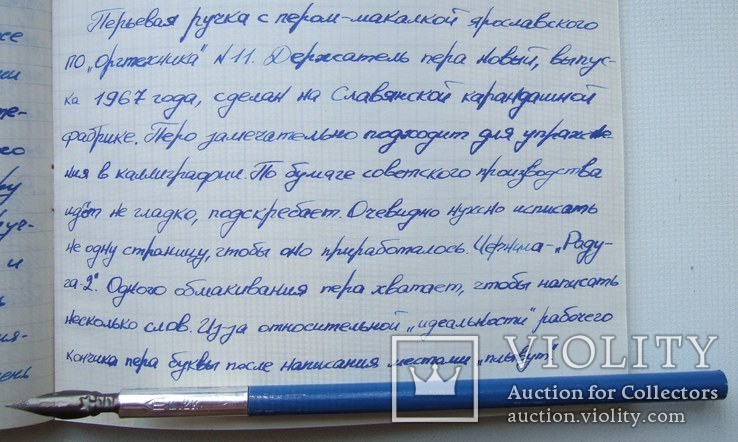 Перьевая ручка с пером-макалкой ярославского
ПО „Оргтехника" №11. Держатель пера новый, выпус-
ка 1967 года, сделан на Славянской карандашной
фабрике. Перо замечательно подходит для упражне
ния в каллиграфии. По бумаге советского производства
идёт не гладко, подскребает. Очевидно нужно исписать
не одну страницу, чтобы оно приработалось. Чернила-„Раду-
га-2". Одного обмакивания пера хватает, чтобы написать
несколько слов. Из-за относительной „идеальности" рабочего
кончика пера буквы после написания местами „плывут"
VIOLITY
Auction for Collectors
auction.violity.com